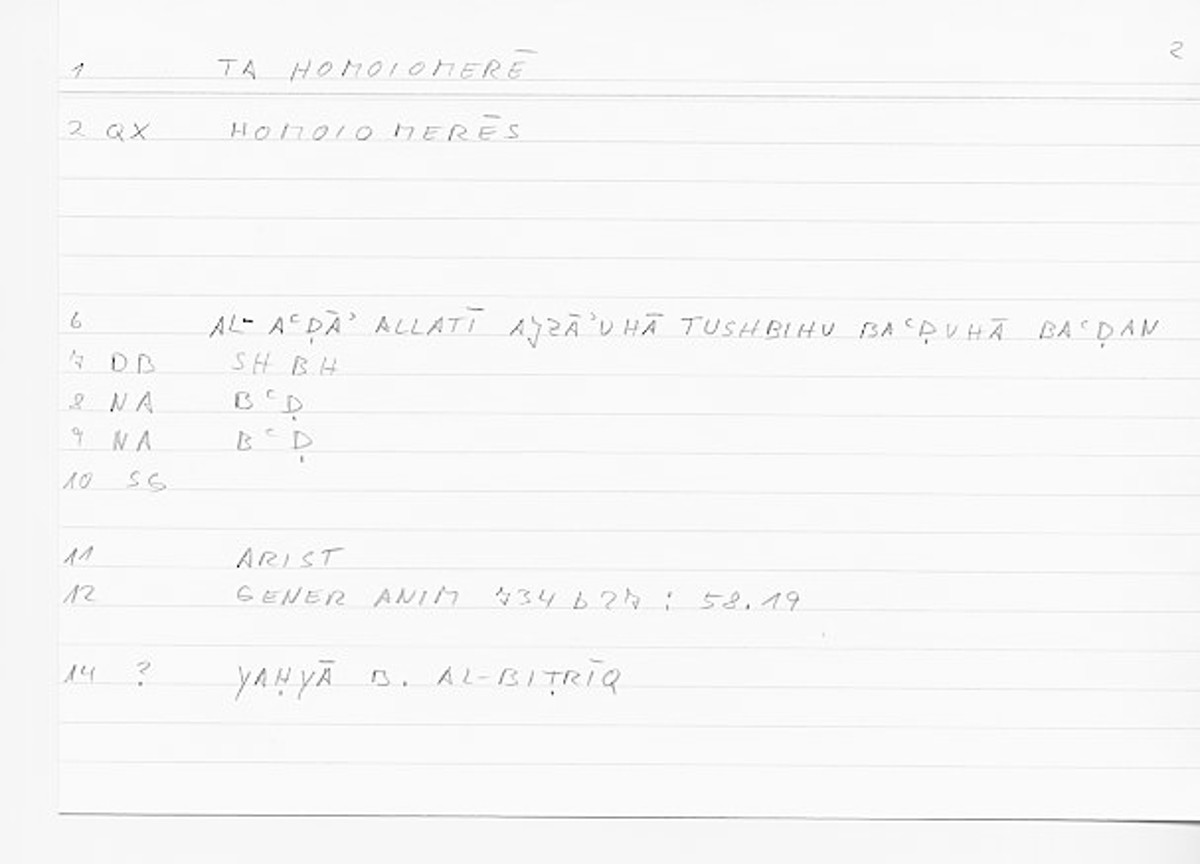 2
1 TA HOMOIOMERĒ
2 QX HOMOIOMERĒS
6 AL-AʿḌĀʾ ALLATĪ AJZĀʾUHĀ TUSHBIHU BAʿḌUHĀ BAʿḌAN
7 DB SHBH
8 NA BʿḌ
9 NA BʿḌ
10 SG
11 ARIST
12 GENER ANIM 734 b 27 : 58.19
14 ? YAḤYĀ B. AL-BIṬRĪQ